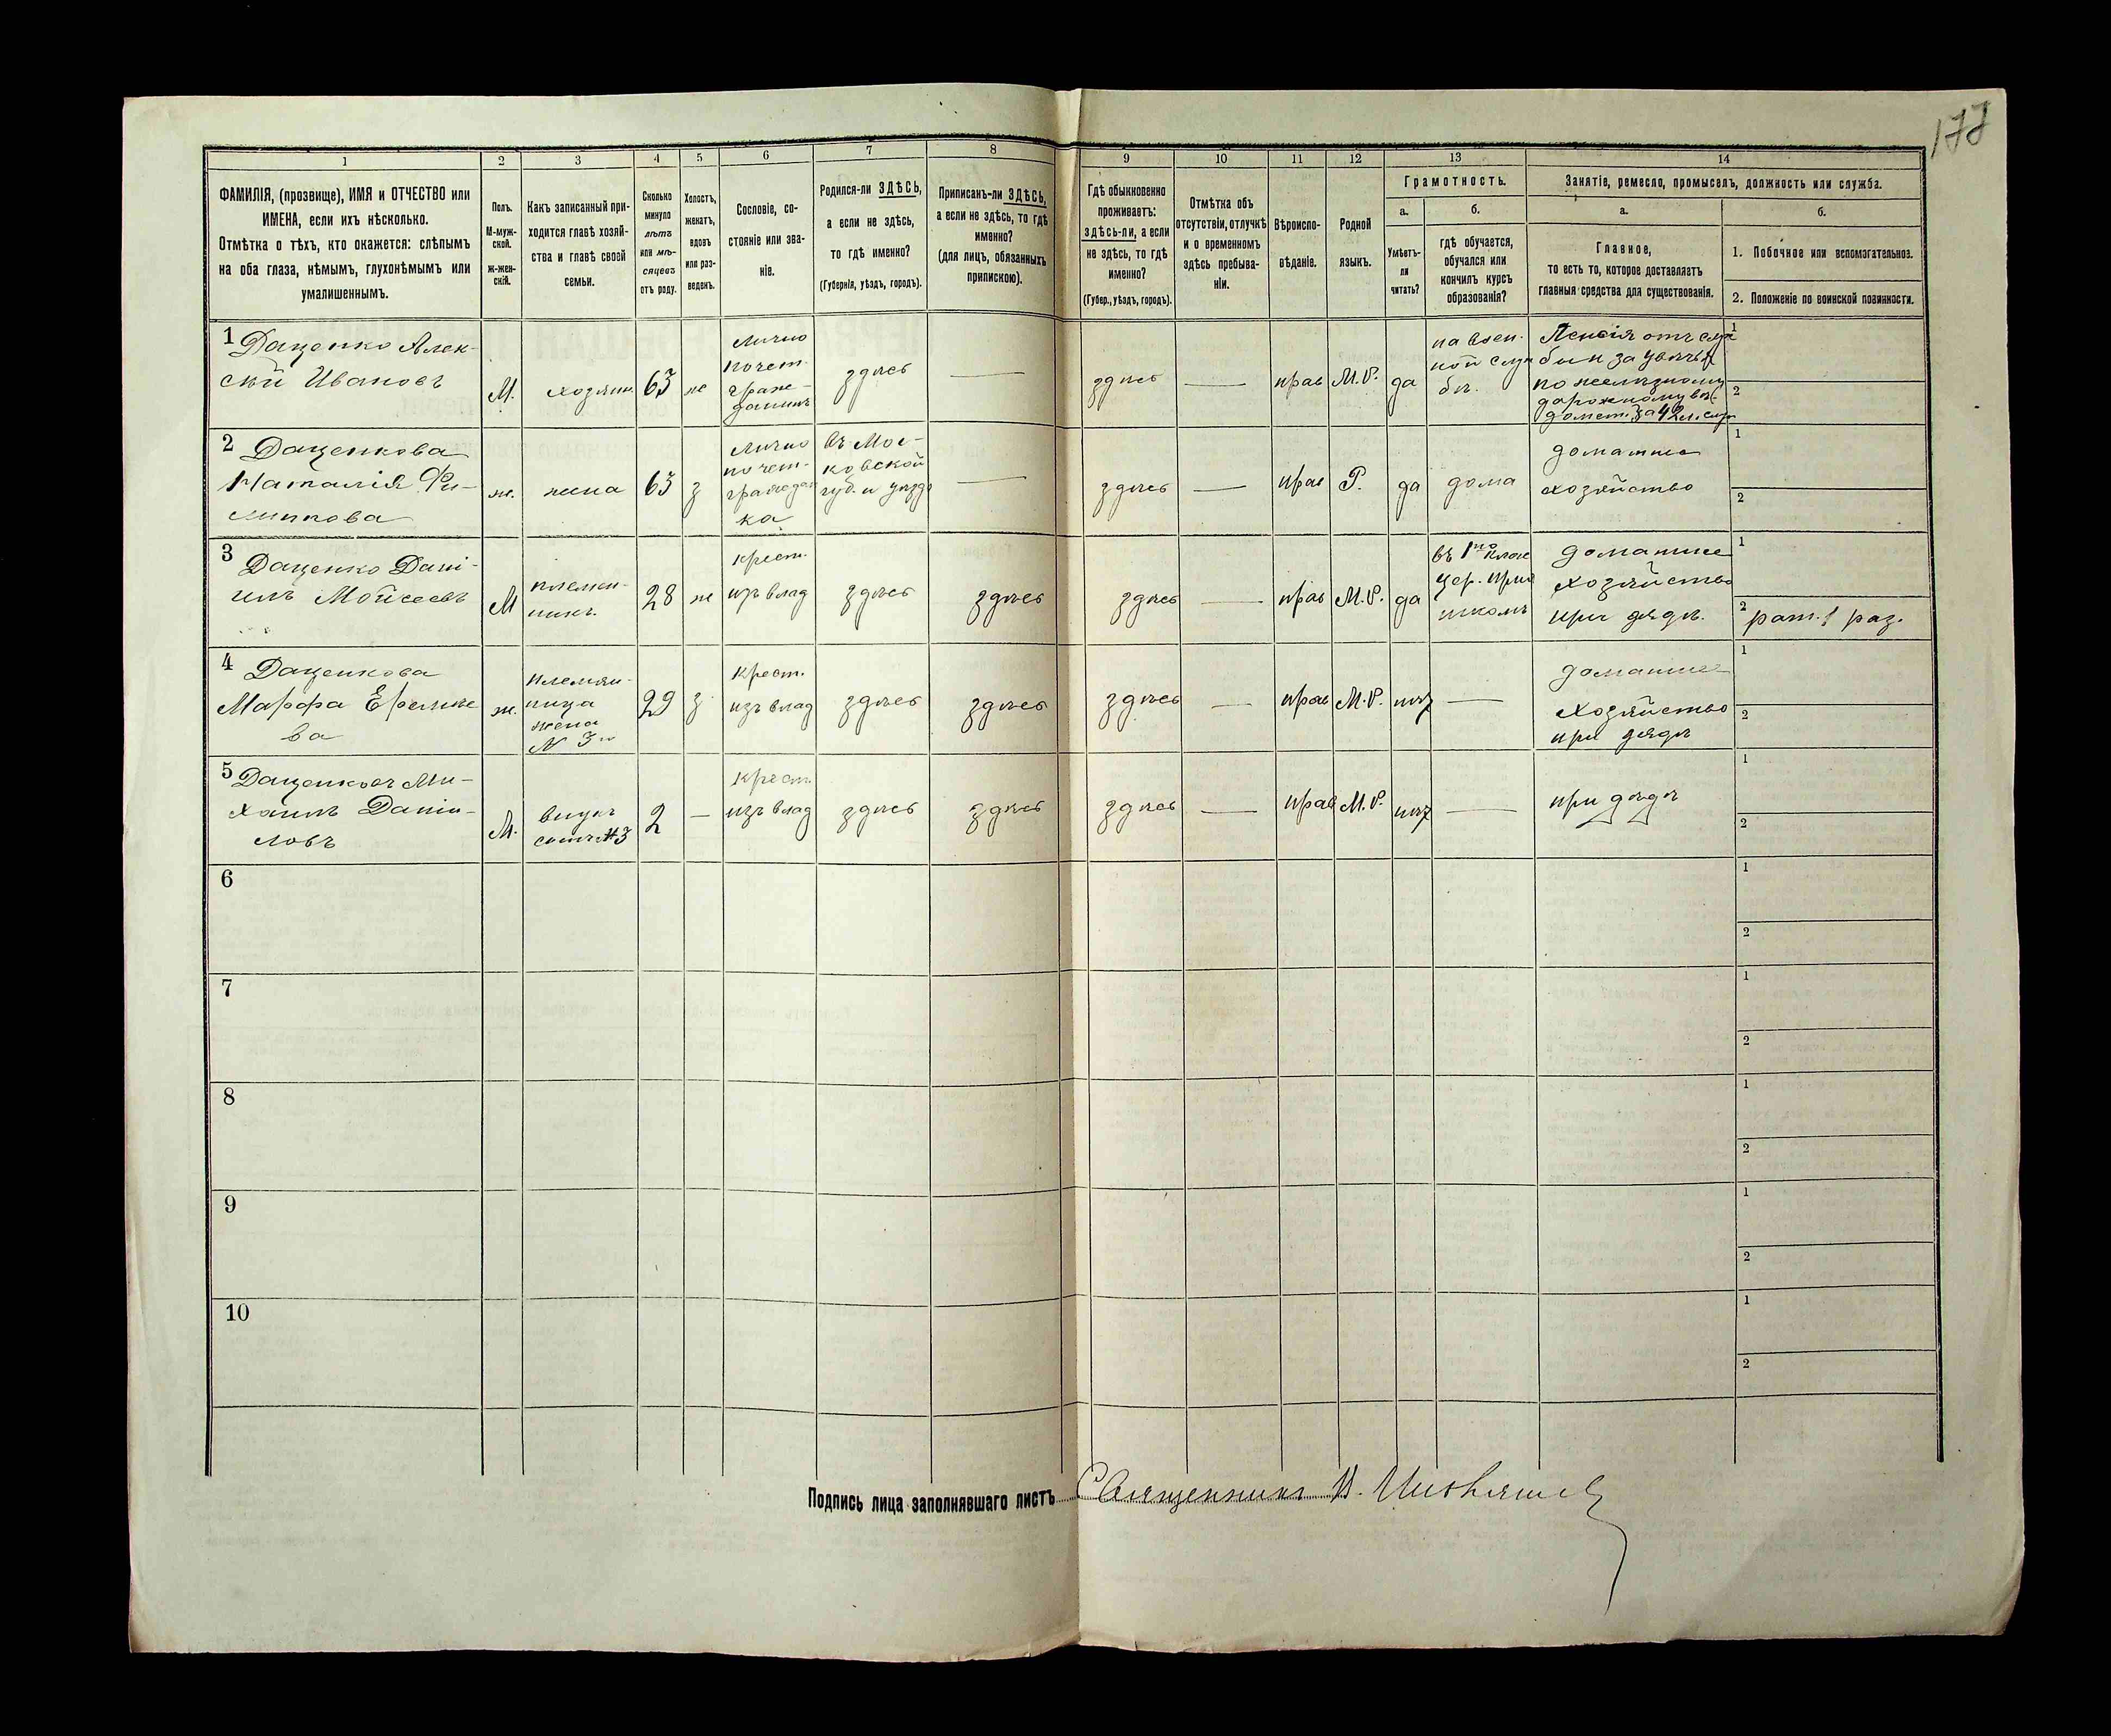 177
1
2
3
4
5
6
7
8
9
10
11
12
13
14
ФАМИЛІЯ, (прозвище), ИМЯ и ОТЧЕСТВО или
ИМЕНА, если ихъ нѣсколько.
Отмѣтка о тѣхъ, кто окажется: слѣпымъ
на оба глаза, нѣмымъ, глухонѣмымъ или
умалишеннымъ.
Полъ.
М-муж-
ской.
ж-жен-
скій.
Какъ записанный при-
ходится главѣ хозяй-
ства и главѣ своей
семьи.
Сколько
минуло
лѣтъ
или мѣ-
сяцевъ
отъ роду.
Холостъ,
женатъ,
вдовъ
или раз-
веденъ.
Сословіе, со-
стояніе или зва-
ніе.
Родился-ли ЗДѢСЬ,
а если не здѣсь,
то гдѣ именно?
(Губернія, уѣздъ, городъ).
Приписанъ-ли ЗДѢСЬ,
а если не здѣсь, то гдѣ
именно?
(для лицъ, обязанныхъ
припискою).
Гдѣ обыкновенно
проживаетъ:
здѣсь-ли, а если
не здѣсь, то гдѣ
именно?
(Губер., уѣздъ, городъ).
Отмѣтка объ
отсутствіи, отлучкѣ
и о временномъ
здѣсь пребыва-
ніи.
Вѣроиспо-
вѣданіе.
Родной
языкъ.
Грамотность.
а.
Умѣетъ-
ли
читать?
б.
гдѣ обучается,
обучался или
кончилъ курсъ
образованія?
Занятіе, ремесло, промыселъ, должность или служба.
а.
Главное,
то есть то, которое доставляетъ
главныя средства для существованія.
б.
1. Побочное или вспомогательное.
2. Положеніе по воинской повинности.
1 Даценко Алек-
сѣй Ивановъ
М.
хозяинъ
63
же
лично
почет.
граж-
данинъ
здѣсь
—
здѣсь
—
прав
М.Р.
да
на воен-
ной служ
бѣ.
Пенсія отъ служ
бы за увѣчья
по желѣзному
дорожному вѣ-
домст. за 42 л. служ
1
2
2 Даценкова
Наталія Фи-
липпова
ж.
жена
63
з
лично
почет-
граждан
ка
въ Мос-
ковской
губ. и уѣзд
—
здѣсь
—
прав
Р.
да
дома
домашнее
хозяйство
1
2
3 Даценко Дані-
илъ Мойсеевъ
М
племян-
никъ.
28
же
крест.
изъ влад
здѣсь
здѣсь
здѣсь
—
прав
М.Р.
да
въ 1но клас
цер. прих
школѣ
домашнее
хозяйство
при дядѣ.
1
2 рат. 1 раз.
4 Даценкова
Марфа Ефимье
ва
ж.
племян-
ница
жена
N 3го
29
з
крест.
изъ влад
здѣсь
здѣсь
здѣсь
—
прав
М.Р.
нѣт
—
домашнее
хозяйство
при дядѣ
1
2
5 Даценковъ Ми-
хаилъ Даніи-
ловъ
М.
внукъ
сынъ №3
2
—
крест.
изъ влад
здѣсь
здѣсь
здѣсь
—
прав
М.Р.
нѣт
—
при дядѣ
1
2
6
1
2
7
1
2
8
1
2
9
1
2
10
1
2
Подпись лица заполнявшаго листъ Священникъ